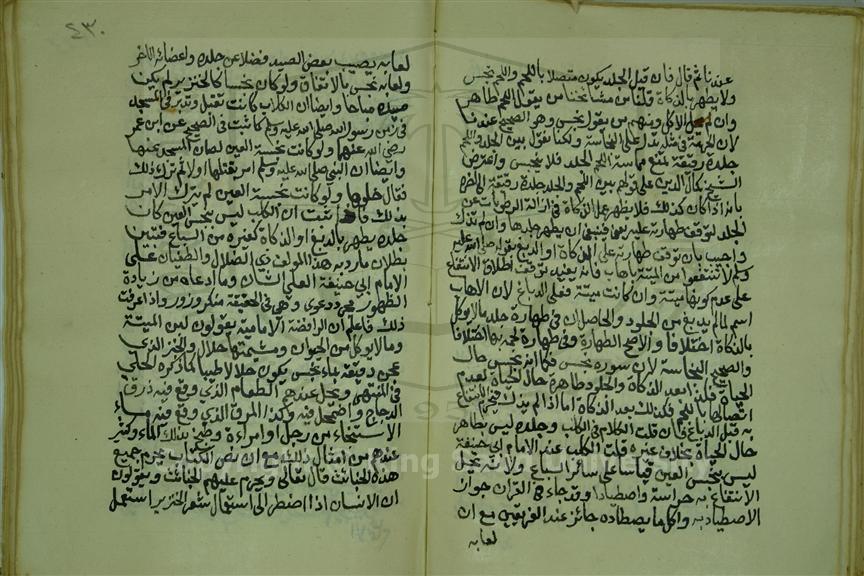 عندنا ثم قال فان قيل الجلد يكون متصلا باللحم واللحم نجس
ولا يطهر بالذكاة قلنا من مشايخنا من يقول اللحم طاهر
وان لم يحل الاكل ومنهم من يقول نجس وهو الصحيح عندنا
لان الحرمة في مثله تدل على النجاسة ولكنا نقول بين الجلد واللحم
جلدة رقيقة تمنع مماسة اللحم الجلد فلا ينجس واعترض
الشيخ كمال الدين على قولهم بين اللحم والجلد جلدة رقيقة الى آخره
بانه اذا كان كذلك فلا يظهر عمل الذكاة في ازالة الرطوبات عن
الجلد لتوقف طهارته عليه يعني فينبغي ان يطهر جلدها وان لم تذك
واجيب بان توقف طهارته على الذكاة او الدبغ بقوله صلى الله عليه
وسلم لا تنتفعوا من الميتة باهاب فانه يفيد توقف اطلاق الانتفاع
على عدم كونها ميتة وان كانت ميتة فعلى الدباغ لان الاهاب
اسم لما لم يدبغ من الجلود والحاصل ان في طهارة جلد ما لا يوكل
بالذكاة اختلافا والاصح الطهارة وفي طهارة لحمه بها اختلافا
والصحيح النجاسة لان سوره نجس فكما انه نجس حال
الحياة فكذا بعد الذكاة والجلود طاهرة حال الحياة لعدم
اتصالها باللحم فكذلك بعد الذكاة اما اذا لم يذك فيحرم الانتفاع
به قبل الدباغ فان قلت الكلام في الكلب وجلده ليس بطاهر
حال الحياة بخلاف غيره قلت الكلب عند الامام ابي حنيفة
ليس بنجس العين قياسا على سائر السباع ولانه يحل
الانتفاع به حراسة واصطيادا وقد جاء في القران جواز
الاصطياد به واكل ما يصطاده جائز عند الفريقين مع ان
لعابه
٤٣٠
لعابه يصيب بعض الصيد فضلا عن جلده واعضائه الاخر
ولعابه نجس بالاتفاق ولو كان نجسا كالخنزير لم يكن
صيده مباحا وايضا ان الكلاب كانت تقبل وتدبر في المسجد
في زمن رسول الله صلى الله عليه وسلم كما ثبت في الصحيح عن ابن عمر
رضي الله عنهما ولو كانت نجسة العين لصان المسجد عنها
وايضا ان النبي صلى الله عليه وسلم امر بقتلها اولا ثم ترك ذلك
فقال خلوها ولو كانت نجسة العين لم يترك الامر
بذلك فاذا ثبت ان الكلب ليس بنجس العين كان
جلده يطهر بالدبغ او الذكاة كغيره من السباع فتبين
بطلان ما رد به هذا المولف ذي الضلال والطغيان على
الامام ابي حنيفة العلي الشان وما ادعاه من زيادة
الظهور مجرد دعوى وهي في الحقيقة منكر وزور واذا عرفت
ذلك فاعلم ان الرافضة الامامية يقولون لبن الميتة
وما لا يوكل من الحيوان ومشيمتها حلال والخبز الذي
عجن دقيقه بماء نجس يكون حلالا طيبا كما ذكره الحلي
في المنتهى ويحل عندهم الطعام الذي وقع فيه ذرق
الدجاج واضمحل فيه وكذا المرق الذي وقع فيه ماء
الاستنجاء من رجل او امراة وطبخ بذلك الماء وكثير
عندهم من امثال ذلك مع ان نص الكتاب يحرم جميع
هذه الخبائث قال تعالى ويحرم عليهم الخبائث ويقولون
ان الانسان اذا اضطر الى استعمال شعر الخنزير استعمل